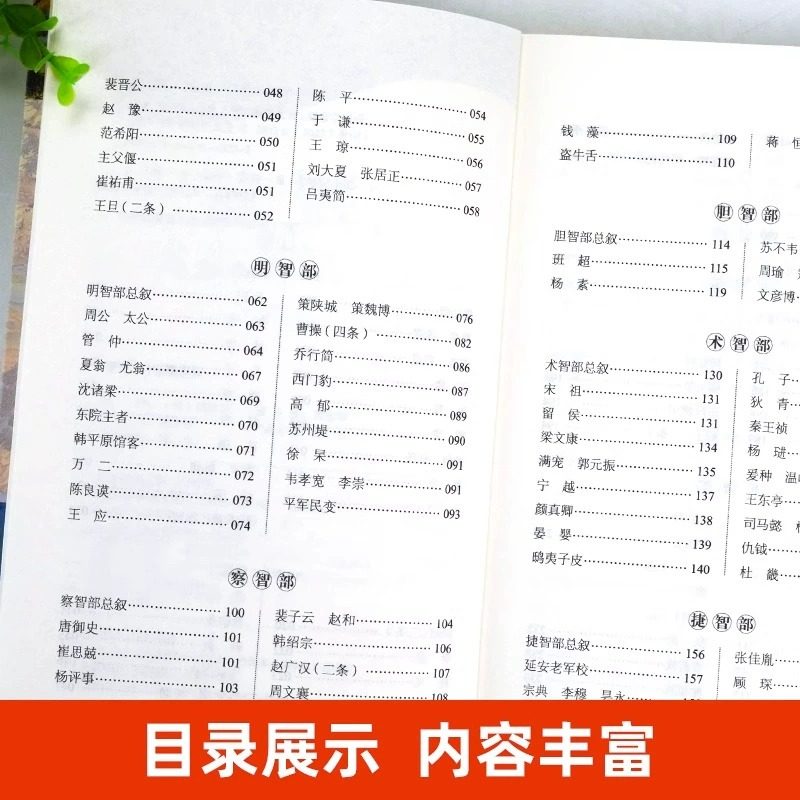 裴晋公 048
赵 豫 049
范希阳 050
主父偃 051
崔祐甫 051
王旦(二条) 052
陈 平 054
于 谦 055
王 琼 056
刘大夏 张居正 057
吕夷简 058
明智部
明智部总叙 062
周公 太公 063
管 仲 064
夏翁 尤翁 067
沈诸梁 069
东院主者 070
韩平原馆客 071
万 二 072
陈良谟 073
王 应 074
策陕城 策魏博 076
曹操(四条) 082
乔行简 086
西门豹 087
高 郁 089
苏州堤 090
徐 杲 091
韦孝宽 李崇 091
平军民变 093
察智部
察智部总叙 100
唐御史 101
崔思兢 101
杨评事 103
裴子云 赵和 104
韩绍宗 106
赵广汉(二条) 107
周文襄 108
钱 藻 109
盗牛舌 110
蒋 恒
胆智部
胆智部总叙 114
班 超 115
杨 素 119
苏不韦
周瑜
文彦博
术智部
术智部总叙 130
宋 祖 131
留 侯 131
梁文康 134
满宠 郭元振 135
宁 越 137
颜真卿 138
晏 婴 139
鸱夷子皮 140
孔 子
狄 青
秦王祯
杨 琎
爱种 温
王东亭
司马懿
仇钺
杜 畿
捷智部
捷智部总叙 156
延安老军校 157
宗典 李穆 昙永
张佳胤
顾 琛
目录展示 内容丰富